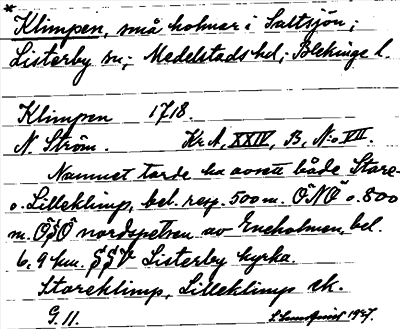 *
Klimpen, små holmar i Saltsjön;
Listerby sn; Medelstads hd; Blekinge l.
Klimpen 1718.
N. Ström. Kr A, XXIV, B, N:o VII.
Namnet torde ha avsett både Store-
o. Lilleklimp, bel. resp. 500 m. ÖNÖ o. 800
m. ÖSÖ nordspetsen av Eneholmen, bel.
6.9 km. SSV Listerby kyrka.
Storeklimp, Lilleklimp ek.
G. 11. 1927.